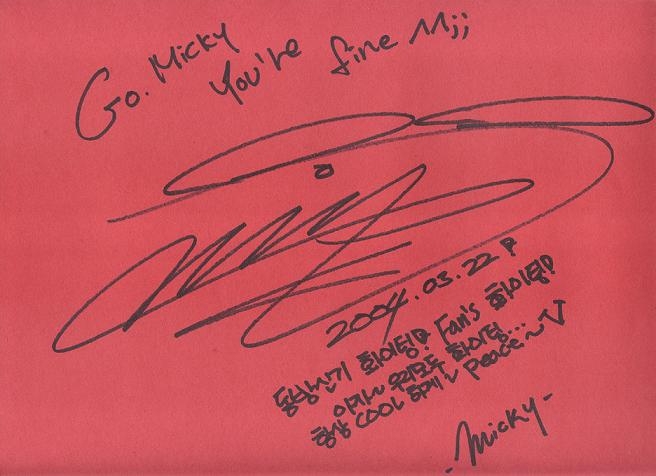 Go. Micky
You're fine
2004.03.22
동방신기 화이팅!? Fan's 화이팅!?
아자~ 우리모두 화이팅...
항상 COOL 하게~ peace~ V
Micky-